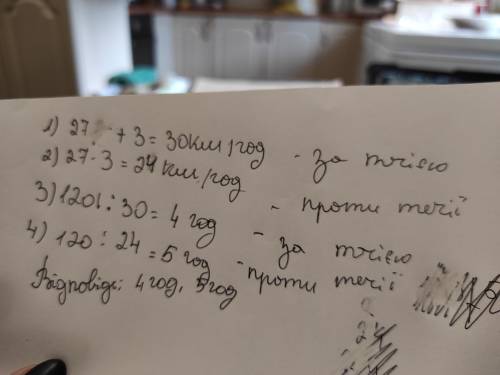 1) 27 + 3 = 30 км/год - за течією
2) 27 - 3 = 24 км/год - проти течії
3) 120 : 30 = 4 год - за течією
4) 120 : 24 = 5 год - проти течії
Відповідь: 4 год, 5 год